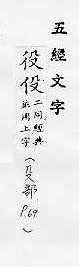 五經文字
役伇二同經典
並用上字
(殳部 P.69)